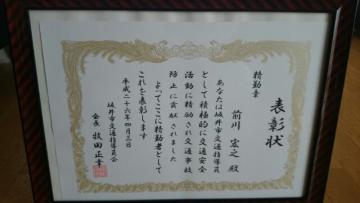 表彰状
精勤章
前川宏之殿
あなたは坂井市交通指導員
として積極的に交通安全
活動に精励され交通事故
防止に貢献されました
よってここに精勤者として
これを表彰します
平成二十六年四月三日
坂井市交通指導員会
会長 牧田正幸